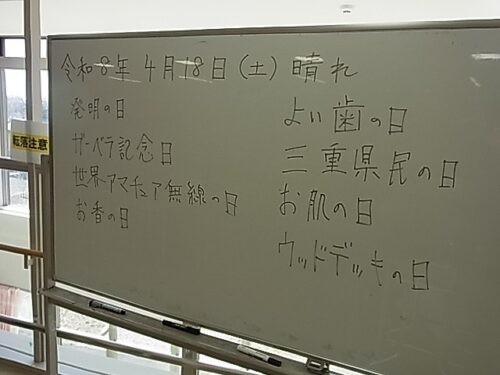 令和8年 4月18日(土) 晴れ
発明の日
ガーベラ記念日
世界アマチュア無線の日
お香の日
よい歯の日
三重県民の日
お肌の日
ウッドデッキの日
転落注意